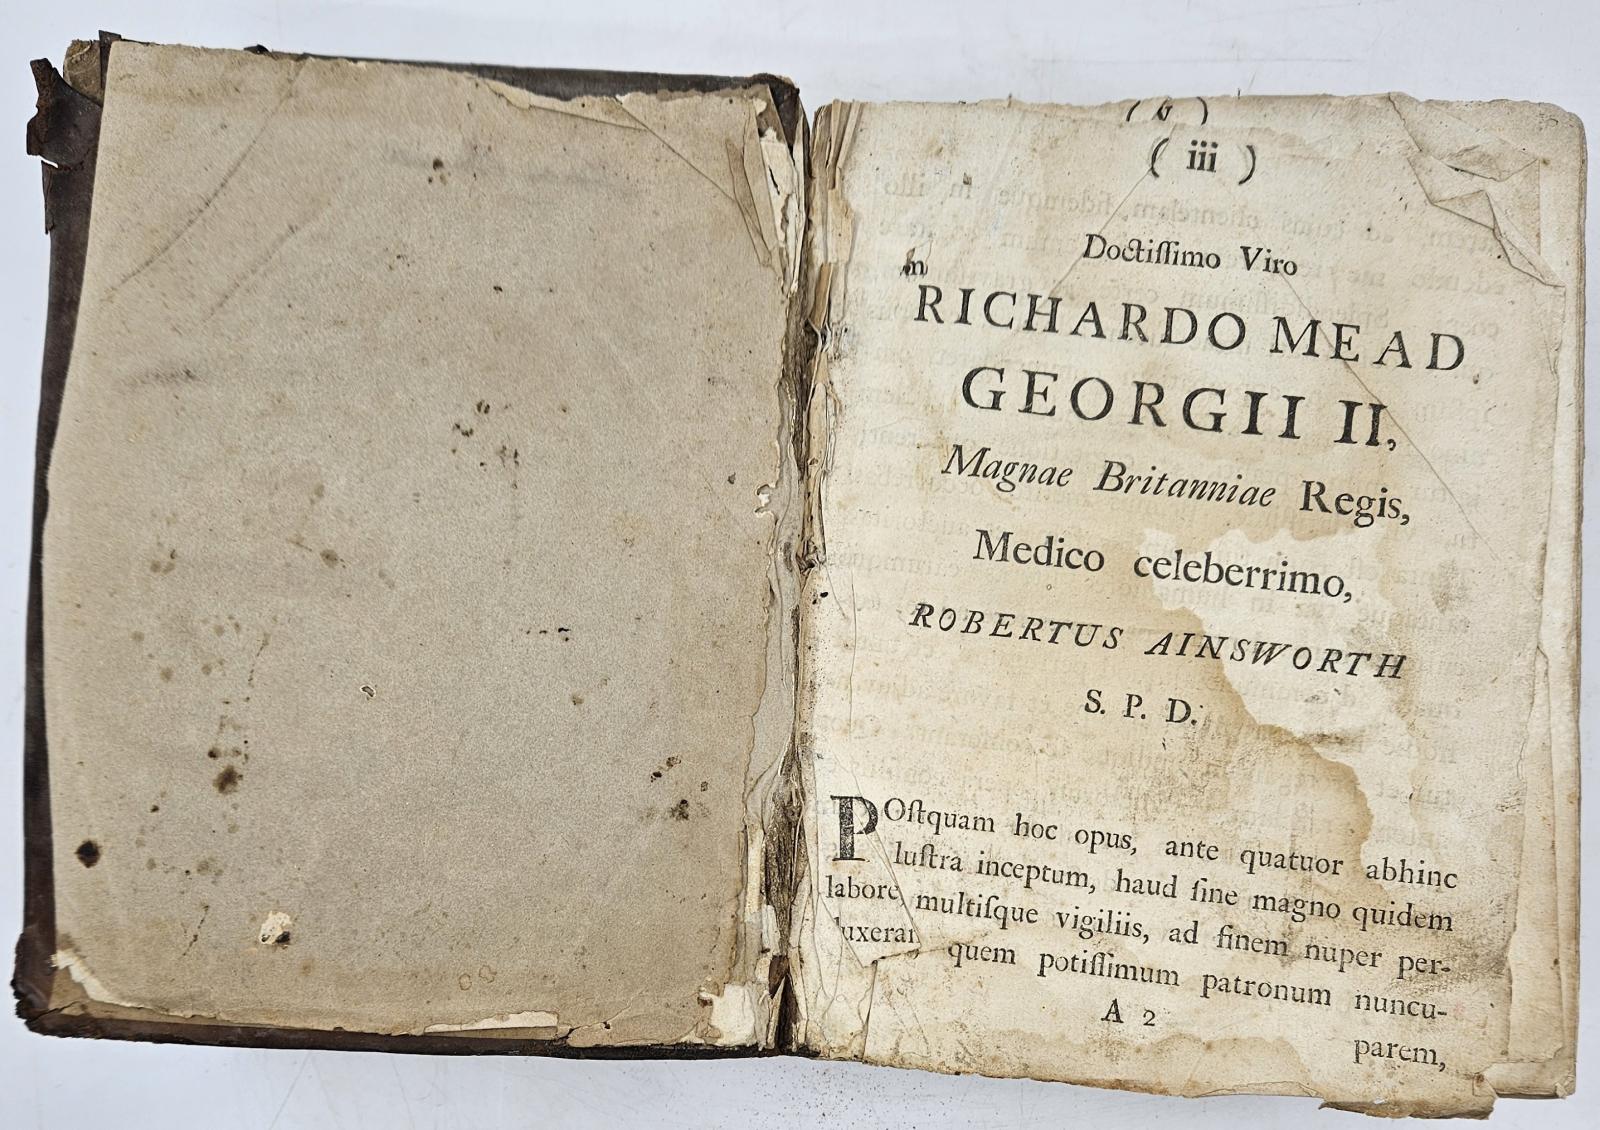 ( iii )
Doctiſſimo Viro
RICHARDO MEAD,
GEORGII II,
Magnae Britanniae Regis,
Medico celeberrimo,
ROBERTUS AINSWORTH
S. P. D.
POſtquam hoc opus, ante quatuor abhinc
luſtra inceptum, haud ſine magno quidem
labore, multiſque vigiliis, ad finem nuper per-
quem potiſſimum patronum nuncu-
A 2
parem,